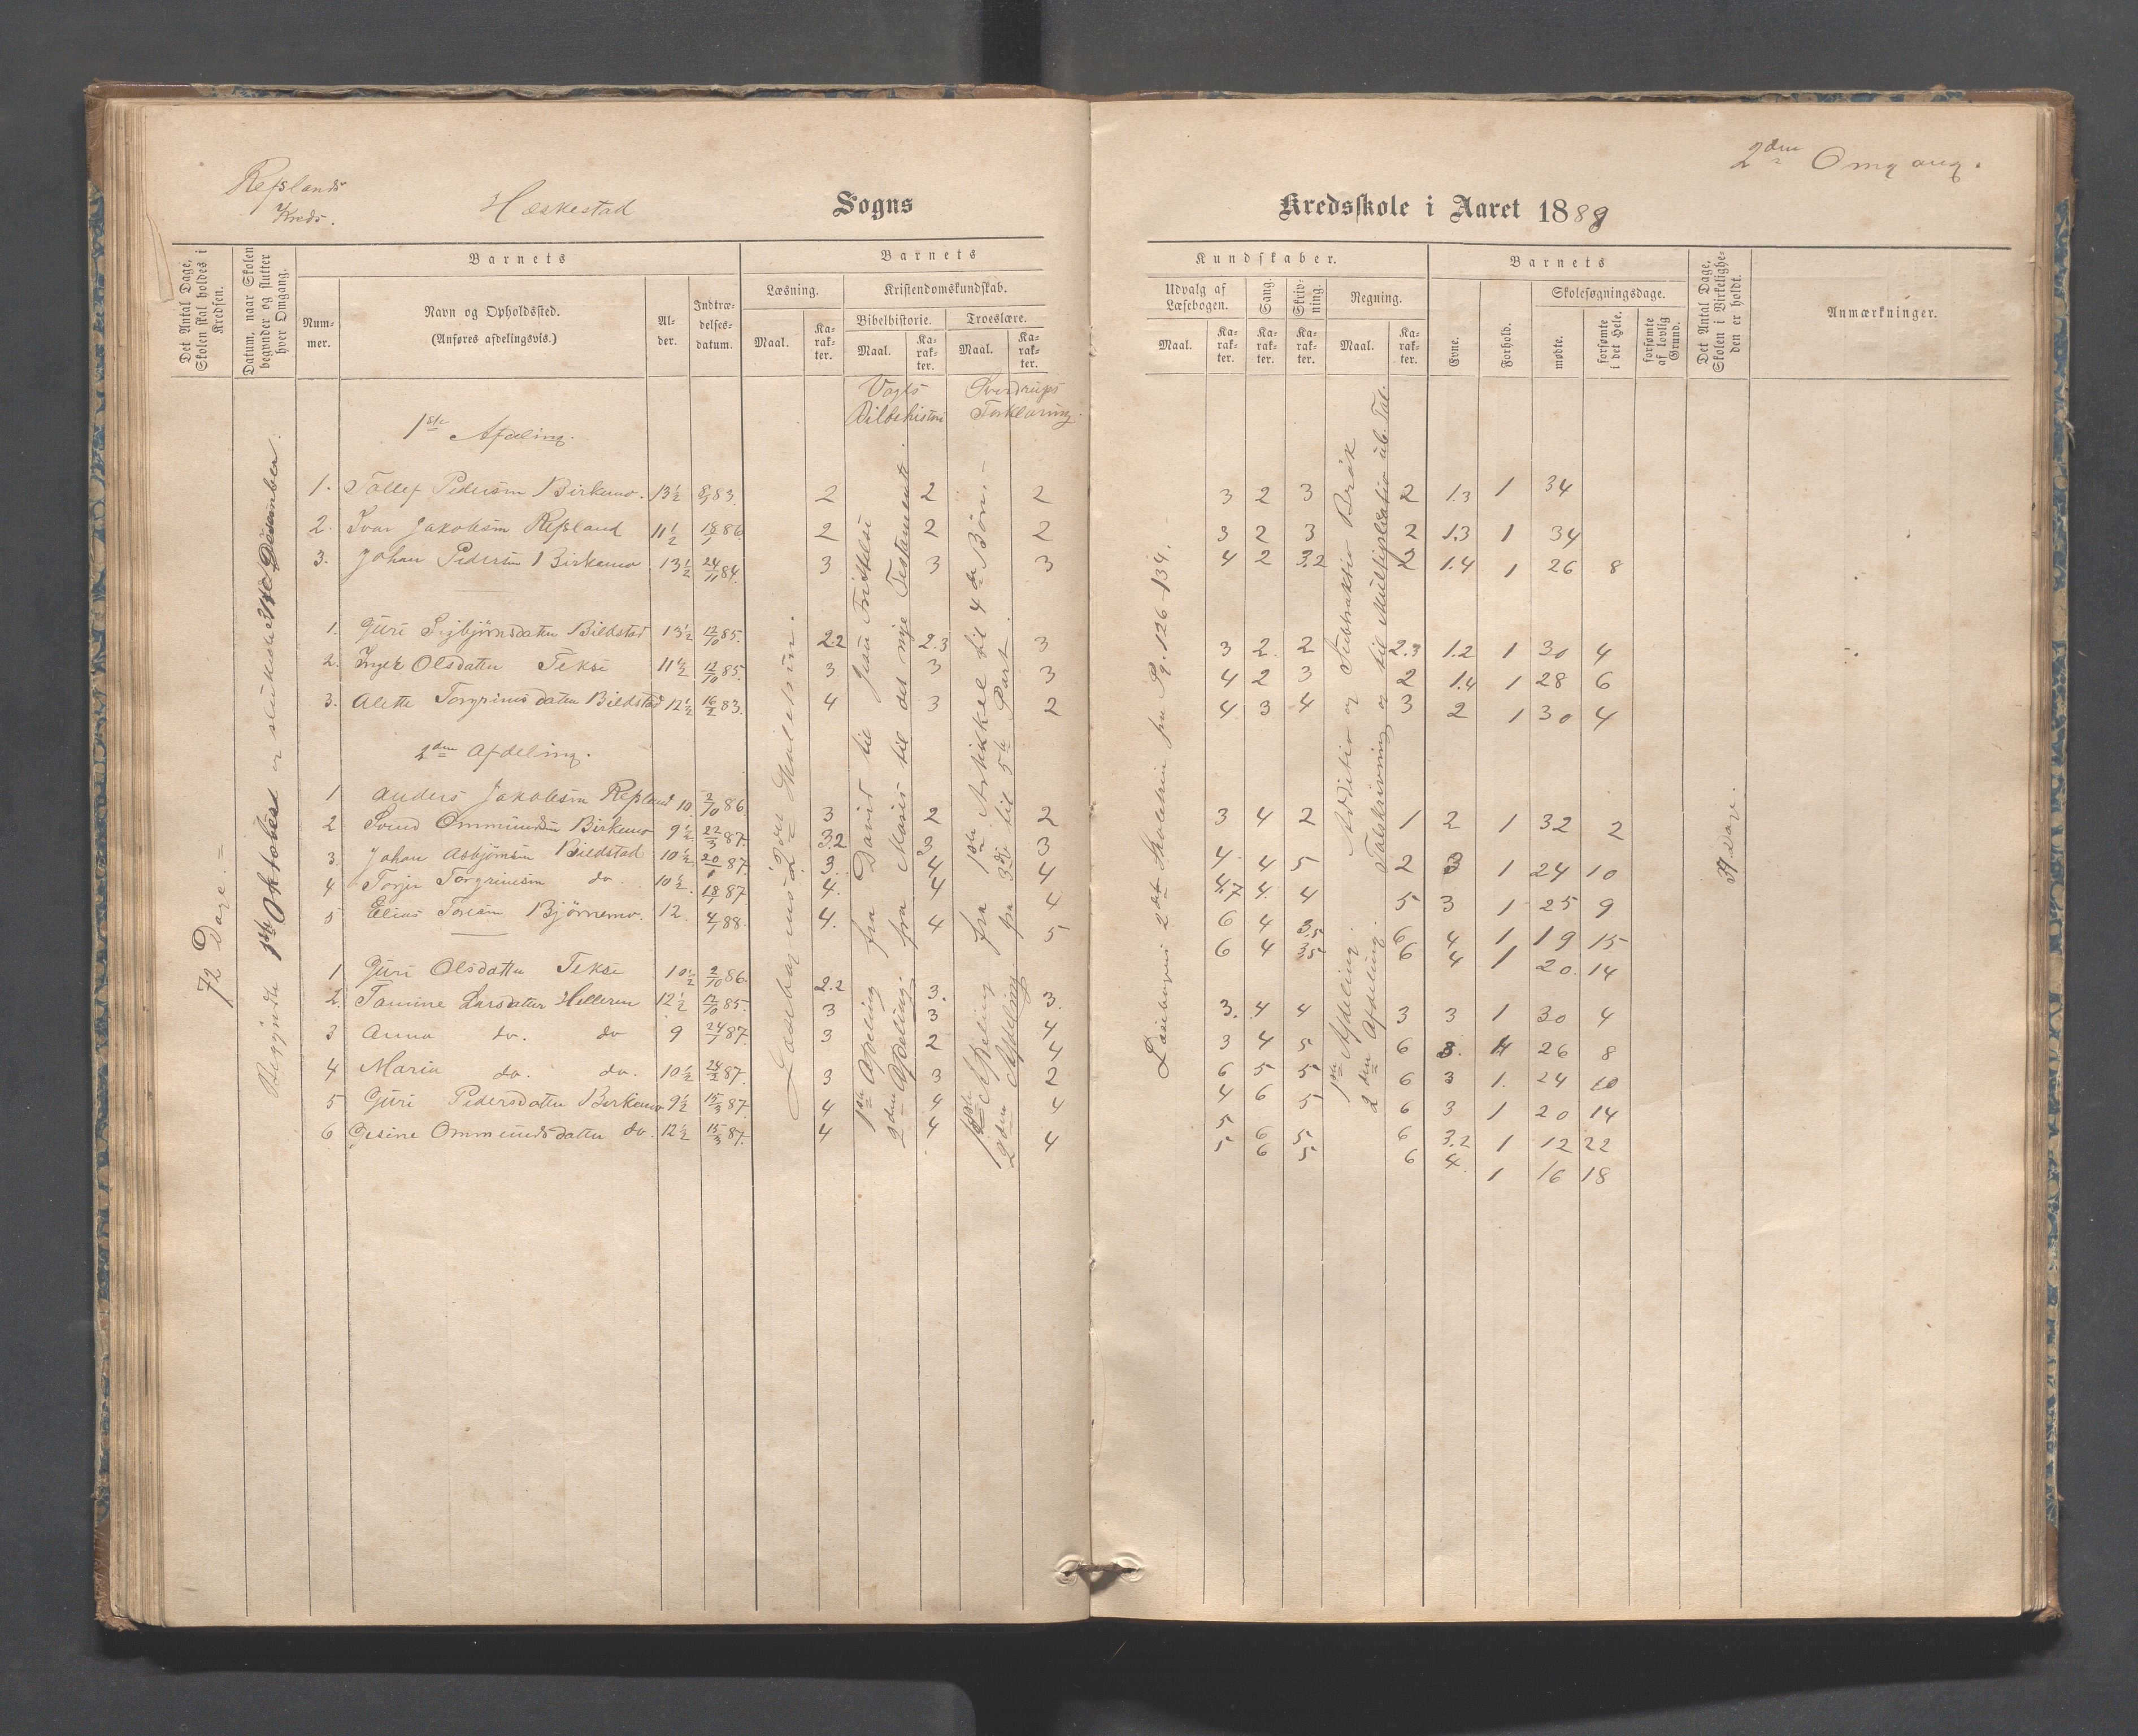 2den Omgang.
Refslands
Kreds.
Heskestad Sogns Kredsskole i Aaret 1889
Det Antal Dage, Skolen skal holdes i Kredsen.
Datum, naar Skolen begynder og slutter hver Omgang.
Barnets
Num-mer.
Navn og Opholdssted.
(Anføres afdelingsvis.)
Al-der.
Indtræ-delses-datum.
Barnets
Læsning.
Kristendomskundskab.
Maal.
Ka-rak-ter.
Bibelhistorie.
Troeslære.
Maal.
Ka-rak-ter.
Maal.
Ka-rak-ter.
Kundskaber.
Udvalg af Læsebogen.
Sang.
Skriv-ning.
Regning.
Maal.
Ka-rak-ter.
Ka-rak-ter.
Ka-rak-ter.
Maal.
Ka-rak-ter.
Barnets
Evne.
Forhold.
Skolesøgningsdage.
mødte.
forsømte i det Hele.
forsømte af lovlig Grund.
Det Antal Dage, Skolen i Virkelighe-den er holdt.
Anmærkninger.
Vogts Bibelhistori
Sverdrups Forklaring.
72 Dage.
Begyndt 1ste Oktober og sluttede Desember.
Læsebogens 2det Skoletrin.
1ste Afdeling fra David til Jesu Fristelse
2den Afdeling fra Moses til det nye Testamente.
1ste Afdeling fra 1ste Artikkel til 4de Bøn.
2den Afdeling fra 3die til 5te Part.
Læsebogens 2det Skoletrin fra Pg. 126-134.
1ste Afdeling. Additio og Subtraktio Brøk
2den Afdeling. Talskrivning og til Multiplikatio ub. Tal.
1ste Afdeling.
1. Tollef Pedersen Birkemo. 13½ 8/1 83. 2 2 2 3 2 3 2 1.3 1 34
2. Ivar Jakobsen Refsland 11½ 18/1 86. 2 2 2 3 2 3 2 1.3 1 34
3. Johan Pedersen Birkemo 13½ 24/11 84. 3 3 3 4 2 3.2 2 1.4 1 26 8
1. Guri Sigbjørnsdatter Bildstad 13½ 12/10 85. 2.2 2.3 3 3 2 2 2.3 1.2 1 30 4
2. Inger Olsdatter Tekse 11½ 12/10 85. 3 3 3 4 2 3 2 1.4 1 28 6
3. Alette Torgrimsdatter Bildstad 12½ 16/2 83. 4 3 2 4 3 4 3 2 1 30 4
2den Afdeling.
1 Anders Jakobsen Refsland 10 2/10 86. 3 2 2 3 4 2 1 2 1 32 2
2 Svend Ommundsen Birkemo 9½ 22/3 87. 3.2 3 3 4 4 5 2 3 1 24 10
3. Johan Asbjørnsen Bildstad 10½ 20/1 87. 3. 4 4 4.7 4. 4 5 3 1 25 9
4 Torjer Torgrimsen do. 10½ 18/1 87 4. 4 4 6 4 3.5 6 4 1 19 15
5 Elias Toresen Bjørnemo. 12. 4/1 88. 4. 4 5 6 4 3.5 6 4 1 20. 14
1 Guri Olsdatter Tekse 10½ 2/10 86. 2.2 3. 3. 3. 4 4 3 3 1 30 4
2. Tomine Larsdatter Helleren 12½ 12/10 85. 3 3 4 3 4 5 6 3. 1 26 8
3 Anna do. do 9 24/1 87. 3 2 4 6 5 5 6 3 1. 24 10
4 Maria do. do. 10½ 24/2 87. 3 3 2 4 6 5 6 3 1 20 14
5 Guri Pedersdatter Birkemo 9½ 15/3 87. 4 4 4 5 6 5 6 3.2 1 12 22
6 Gesine Ommundsdatter do. 12½ 15/3 87. 4 4 4 5 6 5 6 4. 1 16 18